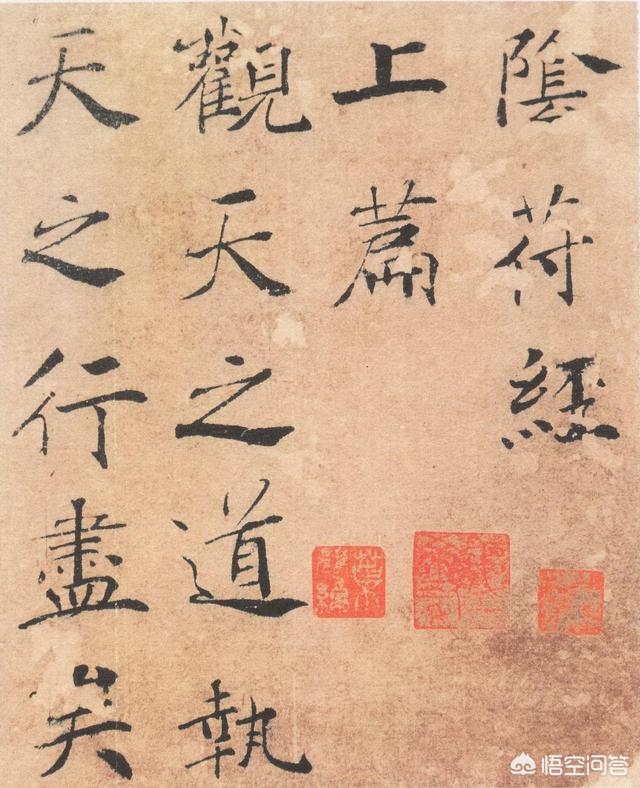 陰符經
上篇
觀天之道執
天之行盡矣
悟空问答